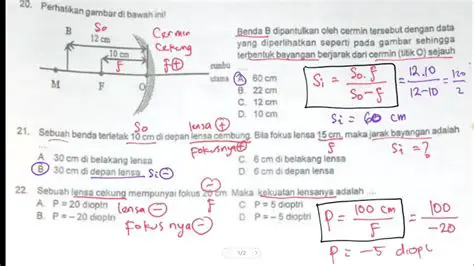 20. Perhatikan gambar di bawah ini!
So
B
12 cm
10 cm
f
M
F
O
Cermin
Cekung
f +
sumbu
utama
Benda B dipantulkan oleh cermin tersebut dengan data
yang diperlihatkan seperti pada gambar sehingga
terbentuk bayangan berjarak dari cermin (titik O) sejauh
A. 60 cm
B. 22 cm
C. 12 cm
D. 10 cm
Si = So.f / So-f = 12.10 / 12-10 = 120 / 2
Si = 60 cm
So
lensa +
21. Sebuah benda terletak 10 cm di depan lensa cembung. Bila fokus lensa 15 cm, maka jarak bayangan adalah
fokusnya +
f
Si = ?
A 30 cm di belakang lensa
B 30 cm di depan lensa
Si −
C 6 cm di belakang lensa
D 6 cm di depan lensa
22. Sebuah lensa cekung mempunyai fokus 20 cm. Maka kekuatan lensanya adalah ...
A. P = 20 dioptri
B. P = − 20 dioptri
C P = 5 dioptri
D. P = − 5 dioptri
lensa −
fokusnya −
f
P = 100 cm / f = 100 / -20
P = -5 diopt
1/2